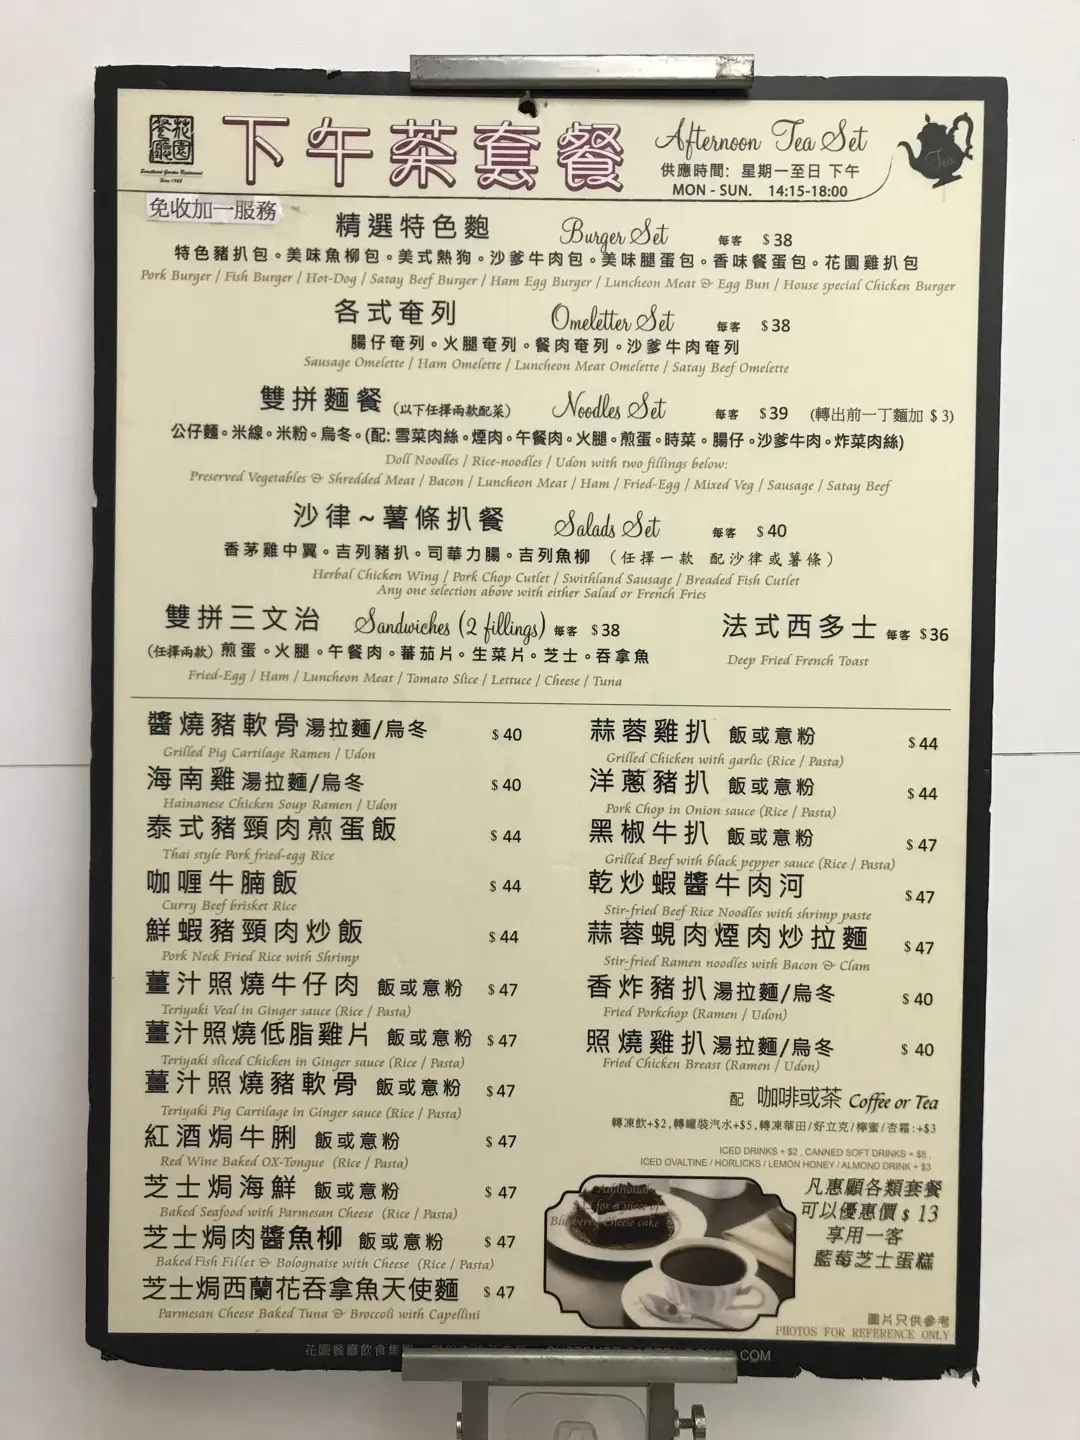 花園餐廳
Sweetheart Garden Restaurant
下午茶套餐
Afternoon Tea Set
供應時間: 星期一至日 下午
MON - SUN. 14:15-18:00
Tea
免收加一服務
精選特色麭 Burger Set 每客 $38
特色豬扒包。美味魚柳包。美式熱狗。沙爹牛肉包。美味腿蛋包。香味餐蛋包。花園雞扒包
Pork Burger / Fish Burger / Hot-Dog / Satay Beef Burger / Ham Egg Burger / Luncheon Meat & Egg Bun / House special Chicken Burger
各式奄列 Omeletter Set 每客 $38
腸仔奄列。火腿奄列。餐肉奄列。沙爹牛肉奄列
Sausage Omelette / Ham Omelette / Luncheon Meat Omelette / Satay Beef Omelette
雙拼麵餐 (以下任擇兩款配菜) Noodles Set 每客 $39 (轉出前一丁麵加 $3)
公仔麵。米線。米粉。烏冬。(配: 雪菜肉絲。煙肉。午餐肉。火腿。煎蛋。時菜。腸仔。沙爹牛肉。炸菜肉絲)
Doll Noodles / Rice-noodles / Udon with two fillings below:
Preserved Vegetables & Shredded Meat / Bacon / Luncheon Meat / Ham / Fried-Egg / Mixed Veg / Sausage / Satay Beef
沙律~薯條扒餐 Salads Set 每客 $40
香茅雞中翼。吉列豬扒。司華力腸。吉列魚柳 (任擇一款 配沙律或薯條)
Herbal Chicken Wing / Pork Chop Cutlet / Swithland Sausage / Breaded Fish Cutlet
Any one selection above with either Salad or French Fries
雙拼三文治 Sandwiches (2 fillings) 每客 $38
(任擇兩款) 煎蛋。火腿。午餐肉。蕃茄片。生菜片。芝士。吞拿魚
Fried-Egg / Ham / Luncheon Meat / Tomato Slice / Lettuce / Cheese / Tuna
法式西多士 每客 $36
Deep Fried French Toast
醬燒豬軟骨湯拉麵/烏冬 $40
Grilled Pig Cartilage Ramen / Udon
海南雞湯拉麵/烏冬 $40
Hainanese Chicken Soup Ramen / Udon
泰式豬頸肉煎蛋飯 $44
Thai style Pork fried-egg Rice
咖喱牛腩飯 $44
Curry Beef brisket Rice
鮮蝦豬頸肉炒飯 $44
Pork Neck Fried Rice with Shrimp
薑汁照燒牛仔肉 飯或意粉 $47
Teriyaki Veal in Ginger sauce (Rice / Pasta)
薑汁照燒低脂雞片 飯或意粉 $47
Teriyaki sliced Chicken in Ginger sauce (Rice / Pasta)
薑汁照燒豬軟骨 飯或意粉 $47
Teriyaki Pig Cartilage in Ginger sauce (Rice / Pasta)
紅酒焗牛脷 飯或意粉 $47
Red Wine Baked OX-Tongue (Rice / Pasta)
芝士焗海鮮 飯或意粉 $47
Baked Seafood with Parmesan Cheese (Rice / Pasta)
芝士焗肉醬魚柳 飯或意粉 $47
Baked Fish Fillet & Bolognaise with Cheese (Rice / Pasta)
芝士焗西蘭花吞拿魚天使麵 $47
Parmesan Cheese Baked Tuna & Broccoli with Capellini
蒜蓉雞扒 飯或意粉 $44
Grilled Chicken with garlic (Rice / Pasta)
洋蔥豬扒 飯或意粉 $44
Pork Chop in Onion sauce (Rice / Pasta)
黑椒牛扒 飯或意粉 $47
Grilled Beef with black pepper sauce (Rice / Pasta)
乾炒蝦醬牛肉河 $47
Stir-fried Beef Rice Noodles with shrimp paste
蒜蓉蜆肉煙肉炒拉麵 $47
Stir-fried Ramen noodles with Bacon & Clam
香炸豬扒湯拉麵/烏冬 $40
Fried Porkchop (Ramen / Udon)
照燒雞扒湯拉麵/烏冬 $40
Fried Chicken Breast (Ramen / Udon)
配 咖啡或茶 Coffee or Tea
轉凍飲+$2,轉罐裝汽水+$5,轉凍華田/好立克/檸蜜/杏霜:+$3
ICED DRINKS + $2 , CANNED SOFT DRINKS + $5 ,
ICED OVALTINE / HORLICKS / LEMON HONEY / ALMOND DRINK + $3
Additional
for a piece of
Blueberry Cheese cake
凡惠顧各類套餐
可以優惠價 $ 13
享用一客
藍莓芝士蛋糕
圖片只供參考
PHOTOS FOR REFERENCE ONLY
花園餐廳飲食集團
.COM